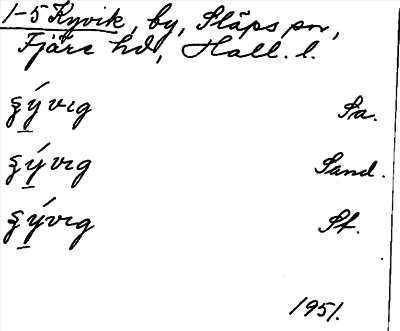 1-5 Kyvik, by, Släps sn,
Fjäre hd, Hall. l.
ʂý̲vıg Sa.
ʂý̲vıg Sand.
ʂý̲vıg St.
1951.